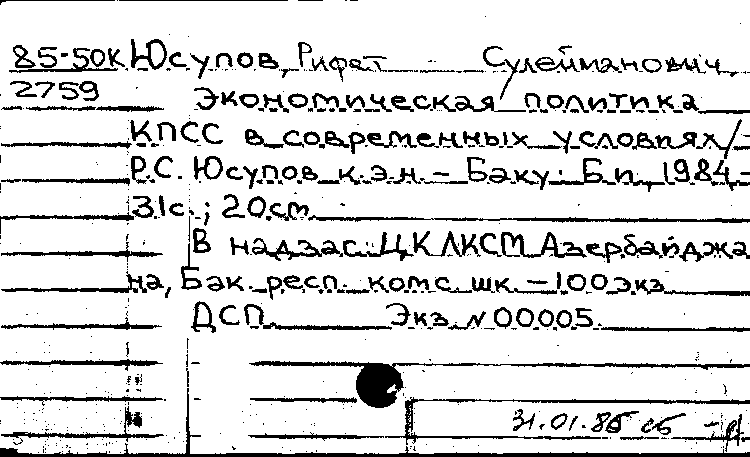 85-50к Юсупов, Рифат Сулейманович.
2759 Экономическая политика
КПСС в современных условиях/
Р.С. Юсупов к.э.н. – Баку: Б.и., 1984.–
31с.; 20см.
В надзаг.: ЦК ЛКСМ Азербайджа
на, Бак. респ. комс. шк. – 100экз.
ДСП. Экз. №00005.
31.01.85 сб